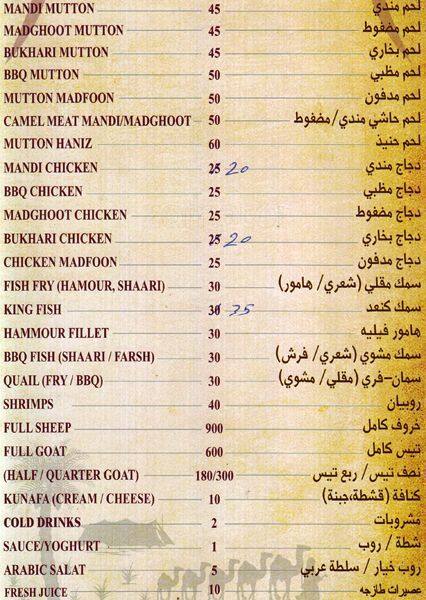 MANDI MUTTON 45 لحم مندي
MADGHOOT MUTTON 45 لحم مضغوط
BUKHARI MUTTON 45 لحم بخاري
BBQ MUTTON 50 لحم مظبي
MUTTON MADFOON 50 لحم مدفون
CAMEL MEAT MANDI/MADGHOOT 50 لحم حاشي مندي/مضغوط
MUTTON HANIZ 60 لحم حنيذ
MANDI CHICKEN 25 20 دجاج مندي
BBQ CHICKEN 25 دجاج مظبي
MADGHOOT CHICKEN 25 دجاج مضغوط
BUKHARI CHICKEN 25 20 دجاج بخاري
CHICKEN MADFOON 25 دجاج مدفون
FISH FRY (HAMOUR, SHAARI) 30 سمك مقلي (شعري/ هامور)
KING FISH 30 35 سمك كنعد
HAMMOUR FILLET 30 هامور فيليه
BBQ FISH (SHAARI / FARSH) 30 سمك مشوي (شعري/ فرش)
QUAIL (FRY / BBQ) 30 سمان-فري (مقلي/ مشوي)
SHRIMPS 40 روبيان
FULL SHEEP 900 خروف كامل
FULL GOAT 600 تيس كامل
(HALF / QUARTER GOAT) 180/300 نصف تيس/ ربع تيس
KUNAFA (CREAM / CHEESE) 10 كنافة (قشطة،جبنة)
COLD DRINKS 2 مشروبات
SAUCE/YOGHURT 1 شطة / روب
ARABIC SALAT 5 روب خيار / سلطة عربي
FRESH JUICE 10 عصيرات طازجه